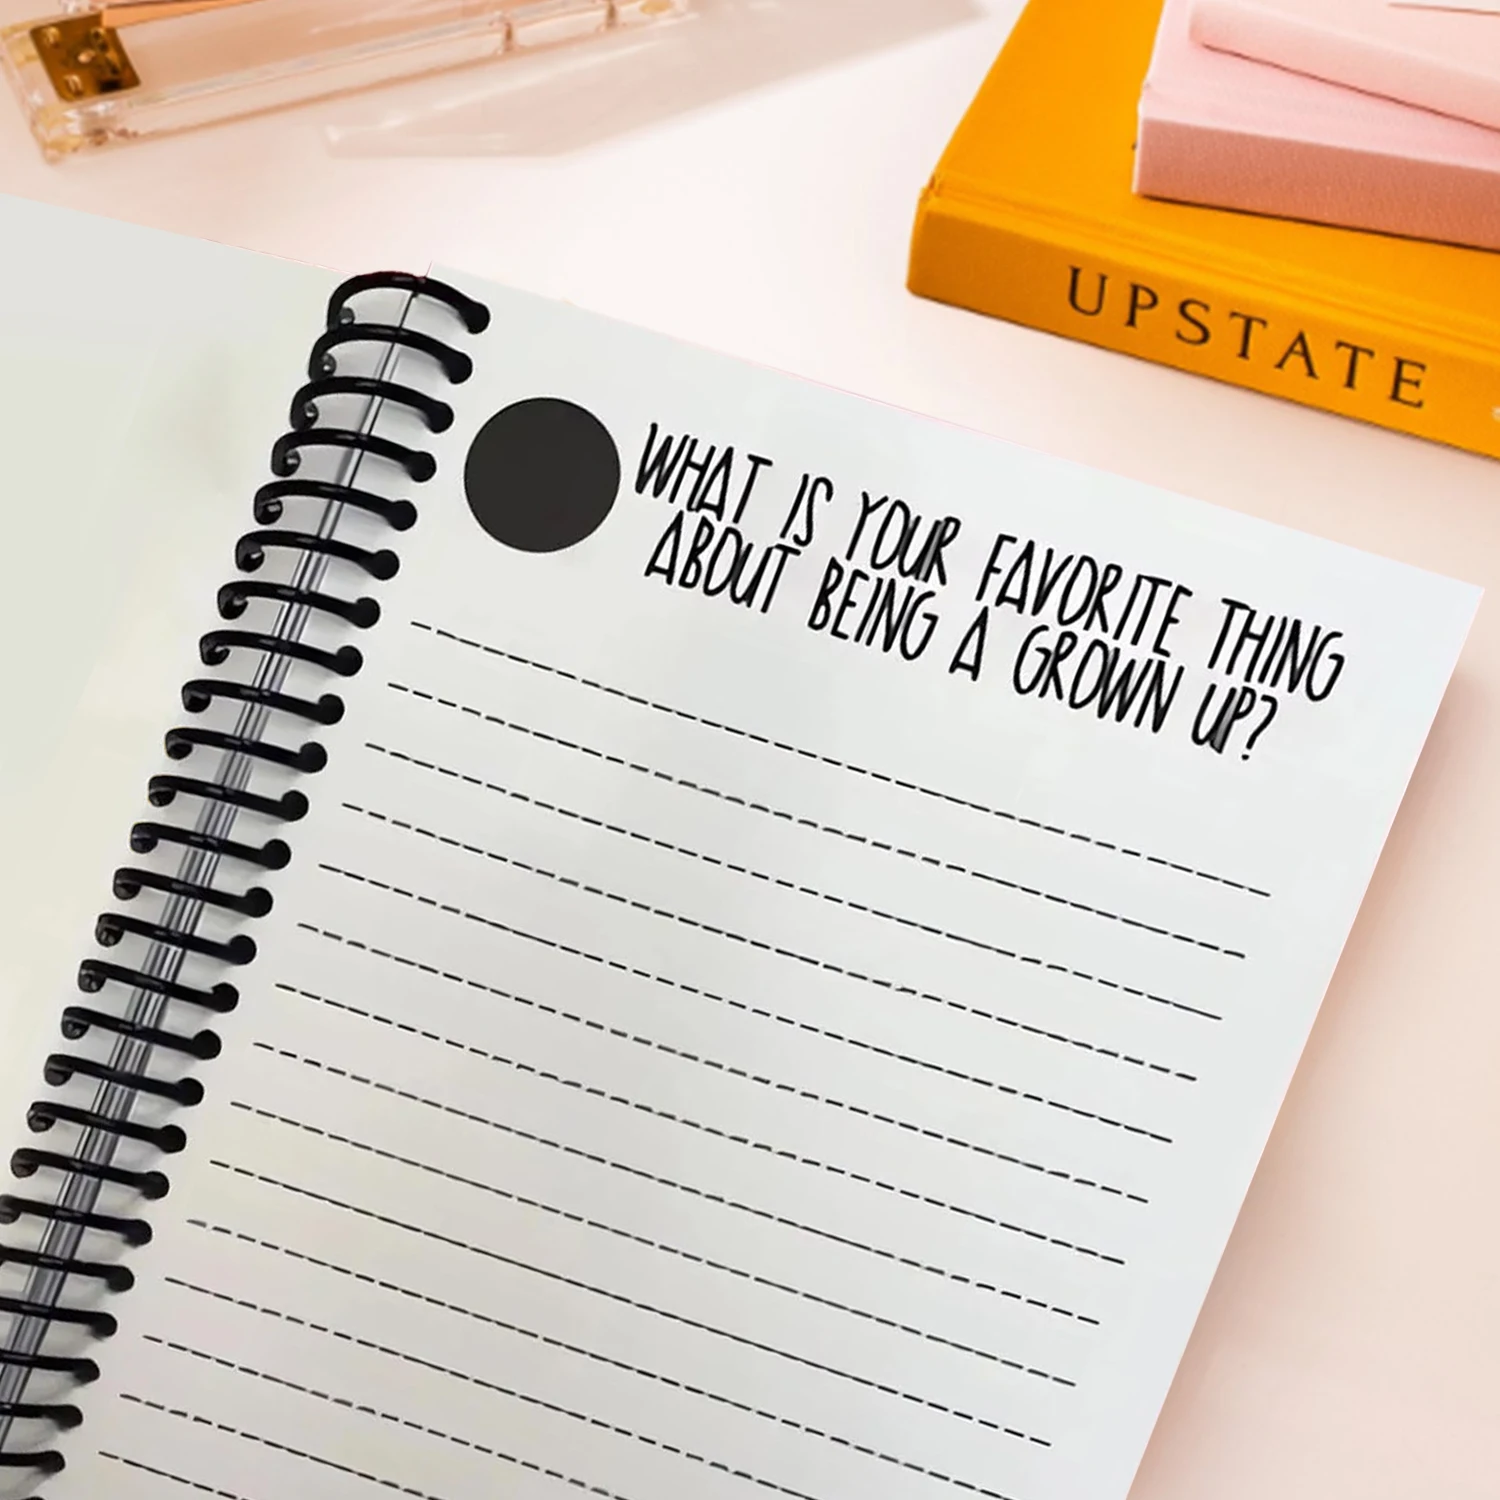 UPSTATE
WHAT IS YOUR FAVORITE THING
ABOUT BEING A GROWN UP?